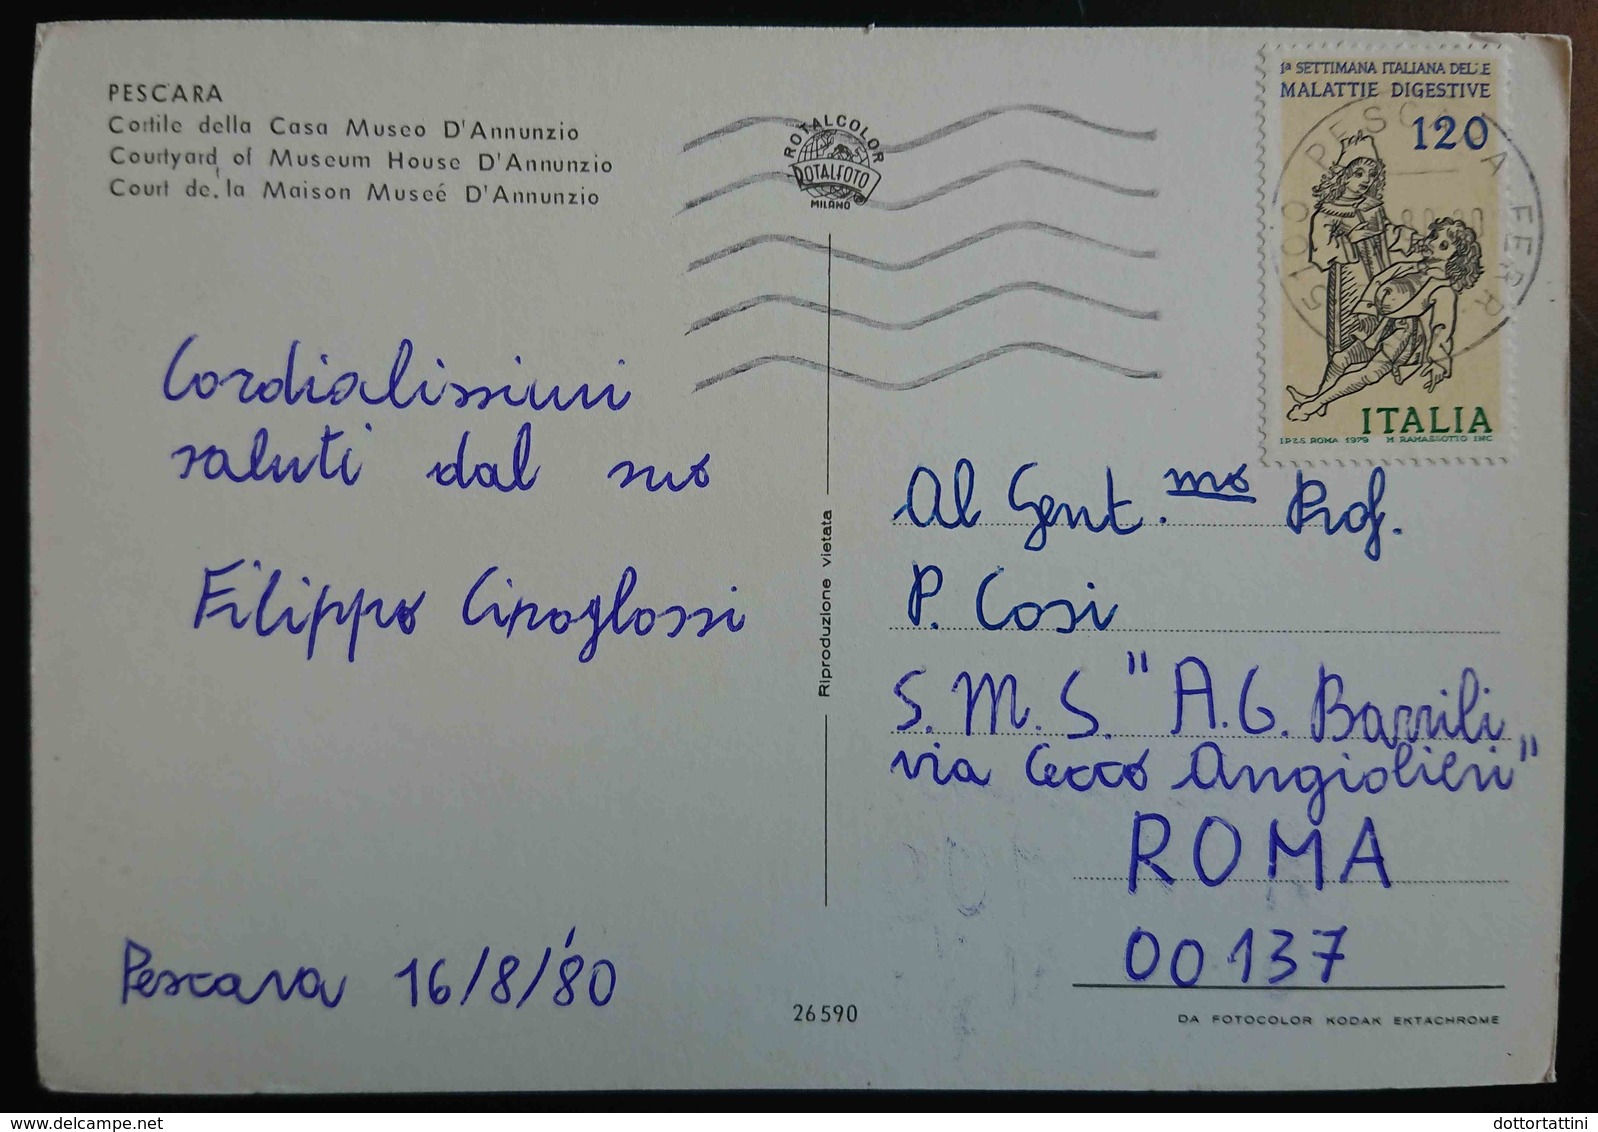 PESCARA
Cortile della Casa Museo D'Annunzio
Courtyard of Museum House D'Annunzio
Court de la Maison Museé D'Annunzio
ROTALCOLOR
ROTALFOTO
MILANO
1ª SETTIMANA ITALIANA DELLE
MALATTIE DIGESTIVE
120
ITALIA
I.P.Z.S. ROMA 1979 M RAMASSOTTO INC
PESCARA FERR
Cordialissimi
saluti dal suo
Filippo Ciroglossi
Pescara 16/8/'80
Riproduzione vietata
26590
Al Gent.mo Prof.
P. Cosi
S.M.S. "A.G. Barrili
via Cecco Angiolieri"
ROMA
00137
DA FOTOCOLOR KODAK EKTACHROME
delcampe.net
dottortattini